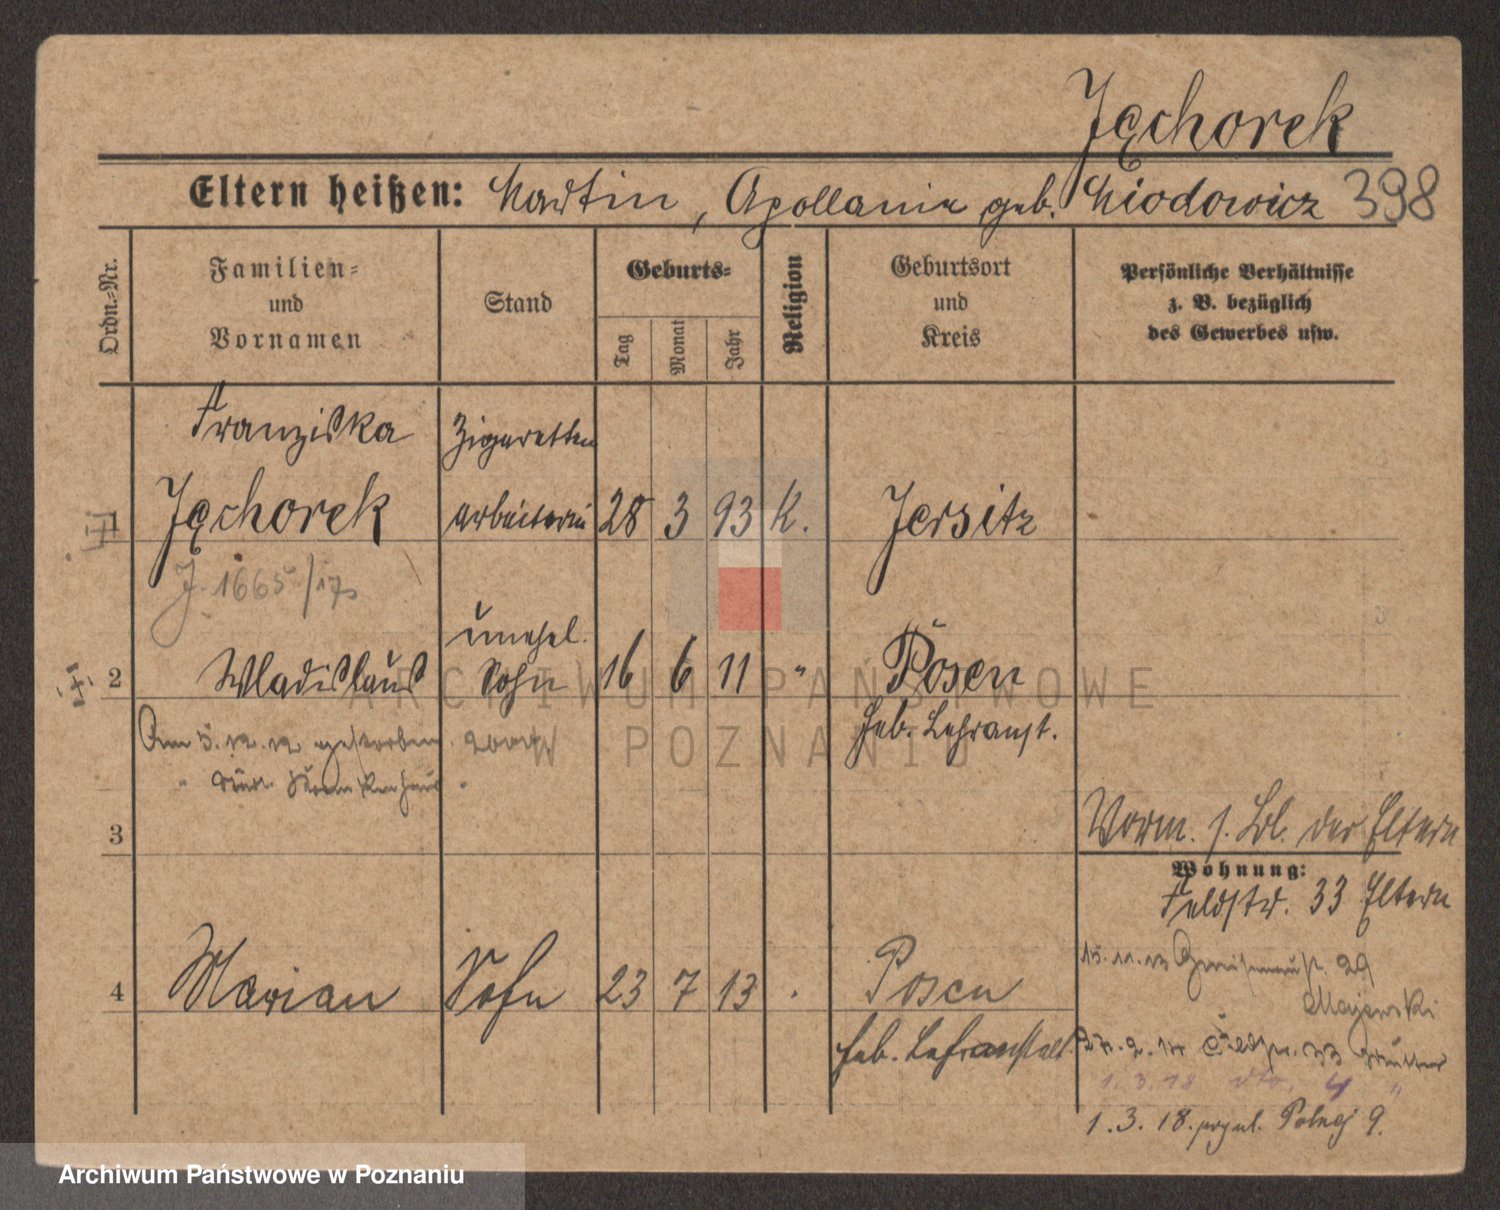 Jęchorek
Eltern heißen: Martin, Apollania geb. Miodowicz 398
Ordn.-Nr.
Familien- und Vornamen
Stand
Geburts-
Tag
Monat
Jahr
Religion
Geburtsort und Kreis
Persönliche Verhältnisse z. B. bezüglich des Gewerbes usw.
Franziska Zigaretten
1 Jęchorek arbeiterin 28 3 93 K. Jersitz
J. 1665/17
unehel.
2 Wladislaus Sohn 16 6 11 " Posen
Heb. Lehranst.
Am 5. 12. 12 gestorben
Krankenhaus
3
Vorm. s. Bl. der Eltern
Wohnung:
Feldstr. 33 Eltern
4 Marian Sohn 23 7 13 Posen
Heb. Lehranstalt
15. 11. 13 Gneisenaustr. 29
Majewski
27. 2. 14 Feldstr. 33 Mutter
1. 3. 18 dto. 4 "
1. 3. 18. Polnej 9.
ARCHIWUM PAŃSTWOWE
W POZNANIU
Archiwum Państwowe w Poznaniu